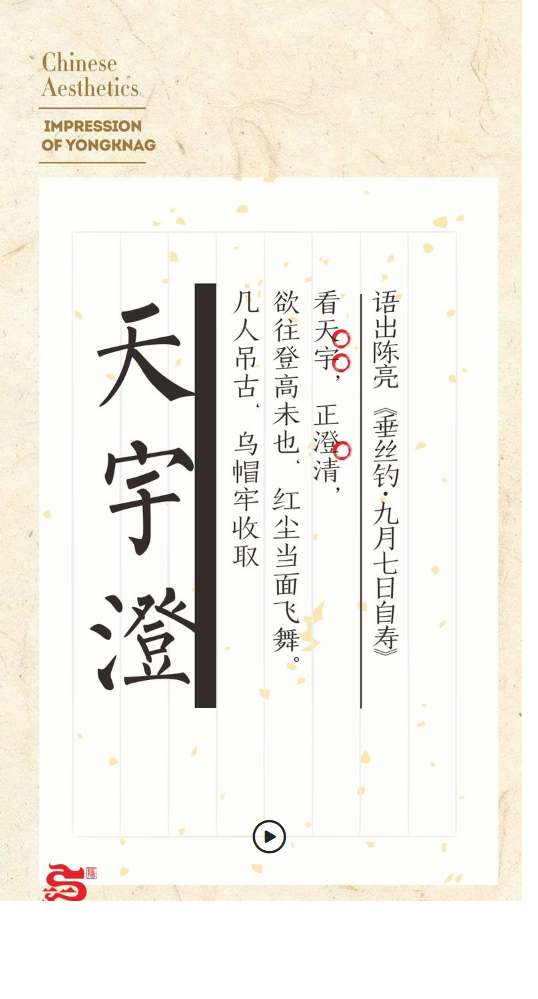 Chinese
Aesthetics
IMPRESSION
OF YONGKNAG
语出陈亮《垂丝钓·九月七日自寿》
看天宇，正澄清，
欲往登高未也、红尘当面飞舞。
几人吊古、乌帽牢收取
天宇澄